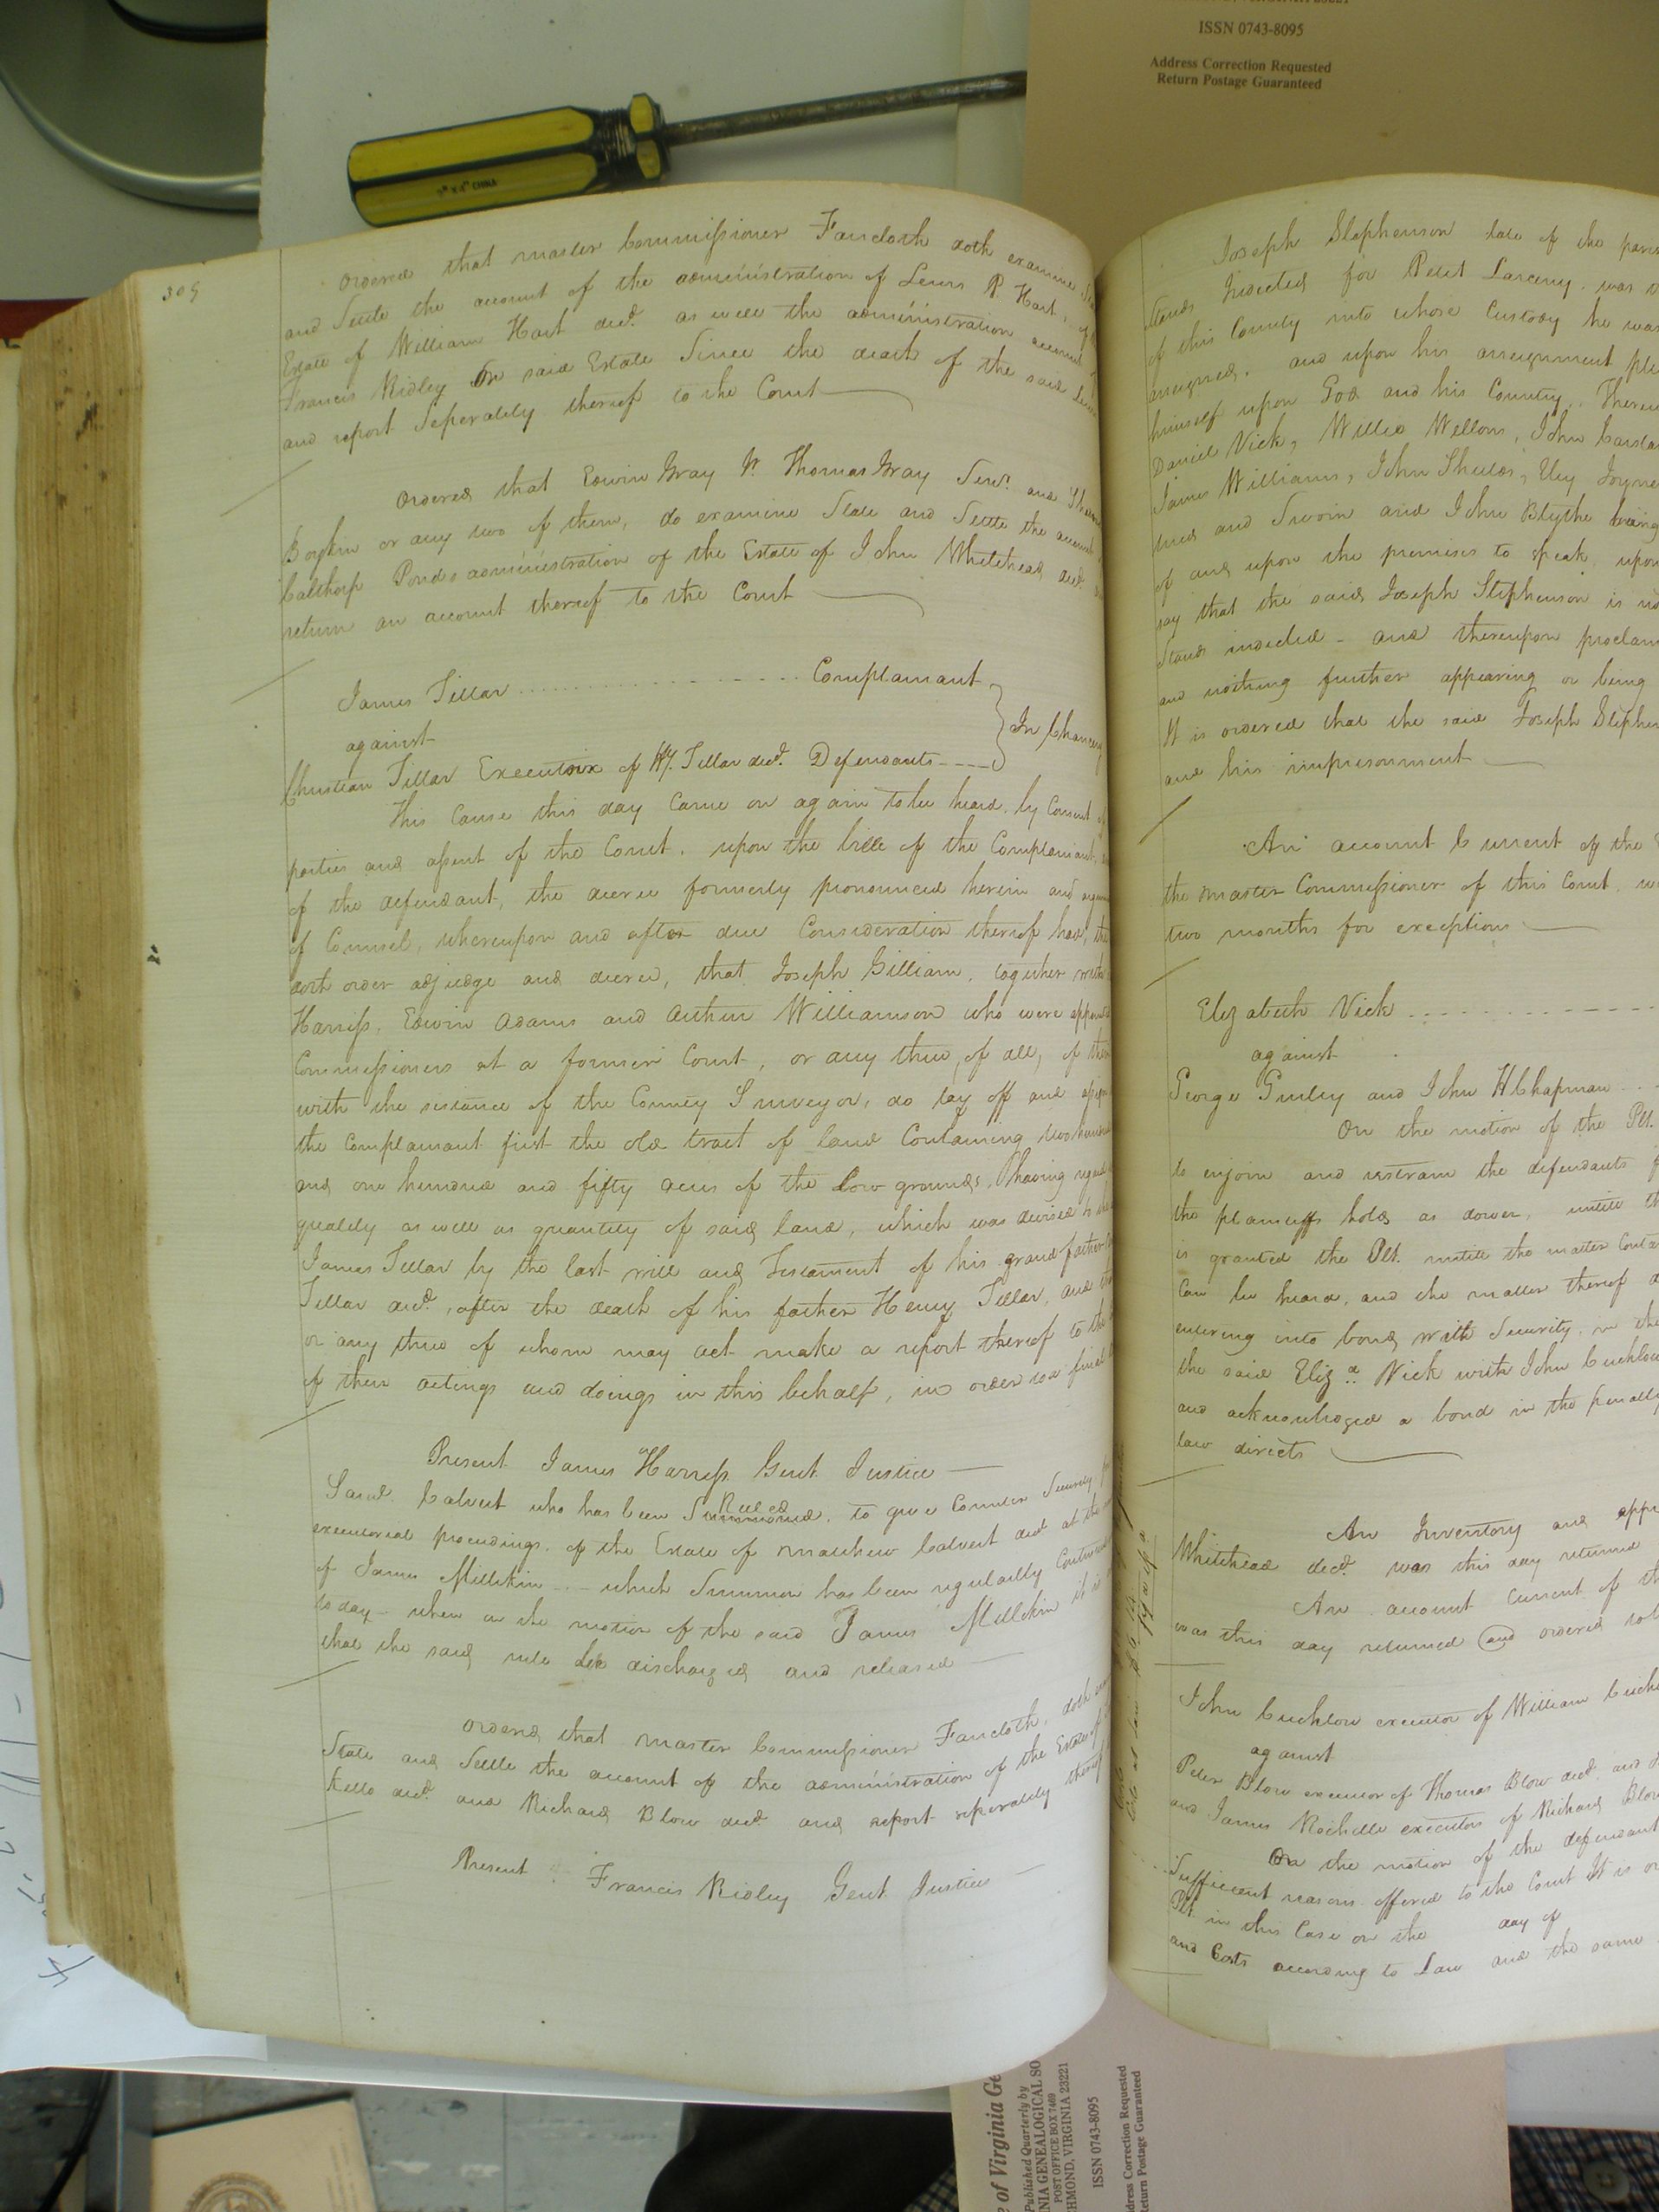 ISSN 0743-8095
Address Correction Requested
Return Postage Guaranteed
309
Ordered that master Commissioner Faircloth doth examine
and Settle the account of the administration of Lewis P. Hart
Estate of William Hart decd. as well the administration account
Francis Ridley on said Estate Since the death of the said Lewis
and report Seperately thereof to the Court
Ordered that Edwin Gray Jr. Thomas Gray Senr. and
Boykin or any two of them, do examine State and Settle the account
Calthorp Ponds administration of the Estate of John Whitehead decd.
return an account thereof to the Court
James Tillar Complainant
against
In Chancery
Christian Tillar Executrix of Hy. Tillar decd. Defendants
This Cause this day Came on again to be heard, by Consent of
parties and assent of the Court, upon the bill of the Complainant,
of the defendant, the decree formerly pronounced herein and
of Counsel, whereupon and after due Consideration thereof had, the
doth order adjudge and decree, that Joseph Gilliam, together with
Harriss, Edwin Adams and Arthur Williamson who were appointed
Commissioners at a former Court, or any three, of all, of them
with the assistance of the County Surveyor, do lay off and assign
the Complainant first the old tract of land Containing two hundred
and one hundred and fifty acres of the low grounds, having regard
quality as well as quantity of said land, which was devised to
James Tillar by the last will and Testament of his grand father
Tillar decd., after the death of his father Henry Tillar, and
or any three of whom may act make a report thereof to the
of their actings and doings in this behalf, in order to a final
Present James Harriss Gent. Justice
Ruled
Saml. Calvert who has been Summoned, to give Counter Security
executorial proceedings, of the Estate of Matthew Calvert decd. at the
of James Millikin which Summon has been regularly Continued
to day - when on the motion of the said James Millikin it is
that the said rule be discharged and released
Ordered that master Commissioner Faircloth, doth
State and Settle the account of the administration of the Estate of
Kello decd. and Richard Blow decd. and report seperately thereof
Present Francis Ridley Gent. Justice
Joseph Stephenson late of the
Stands Indicted for Petit Larceny. was
of this County into whose Custody he was
arraigned, and upon his arraignment
himself upon God and his Country. There
Daniel Vick, Willis Wellons, John
James Williams, John Shields, Ely Joyne
tried and Sworn and John Blythe being
of and upon the premises to speak, upon
say that the said Joseph Stephenson is
Stands indicted - and thereupon
and nothing further appearing or being
It is ordered that the said Joseph Stephen
and his imprisonment
An account Current of the
the master Commissioner of this Court,
two months for exceptions
Elizabeth Vick
against
George Gurley and John H Chapman
On the motion of the Plt.
to enjoin and restrain the defendants
the plaintiffs holds as dower, untill
is granted the Plt. untill the matter
Can be heard, and the matter thereof
entering into bond with Security, in the
the said Eliza. Vick with John
and acknowledged a bond in the penalty
law directs
An Inventory and
Whitehead decd. was this day returned
An account Current of
was this day returned and ordered
John executor of William
against
Peter Blow executor of Thomas Blow decd. and
and James Rochelle executors of Richard Blow
On the motion of the defendant
Sufficient reasons offered to the Court It is
Plt. in this Case on the day of
and Costs according to Law and the same
of Virginia Ge
Published Quarterly by
NIA GENEALOGICAL SO
POST OFFICE BOX 7469
HMOND, VIRGINIA 23221
ISSN 0743-8095
dress Correction Requested
eturn Postage Guaranteed